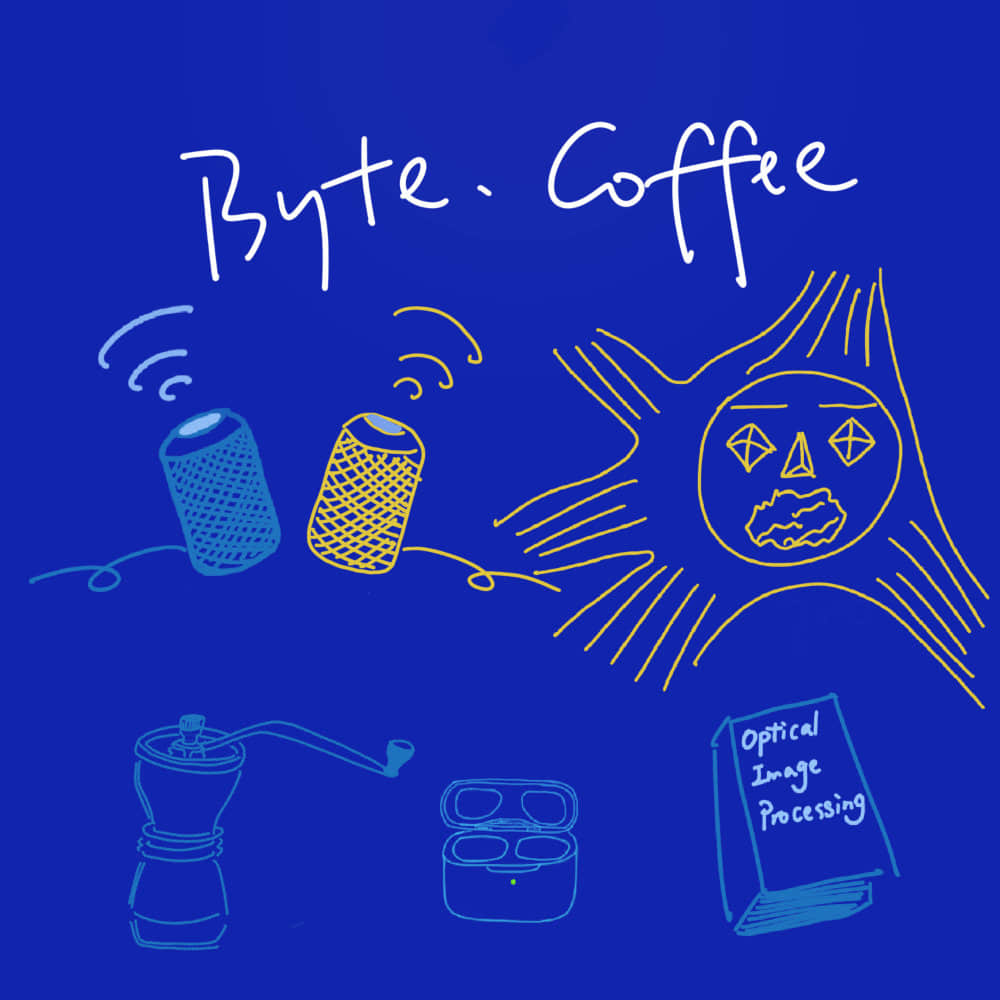 Byte. Coffee
Optical
Image
Processing